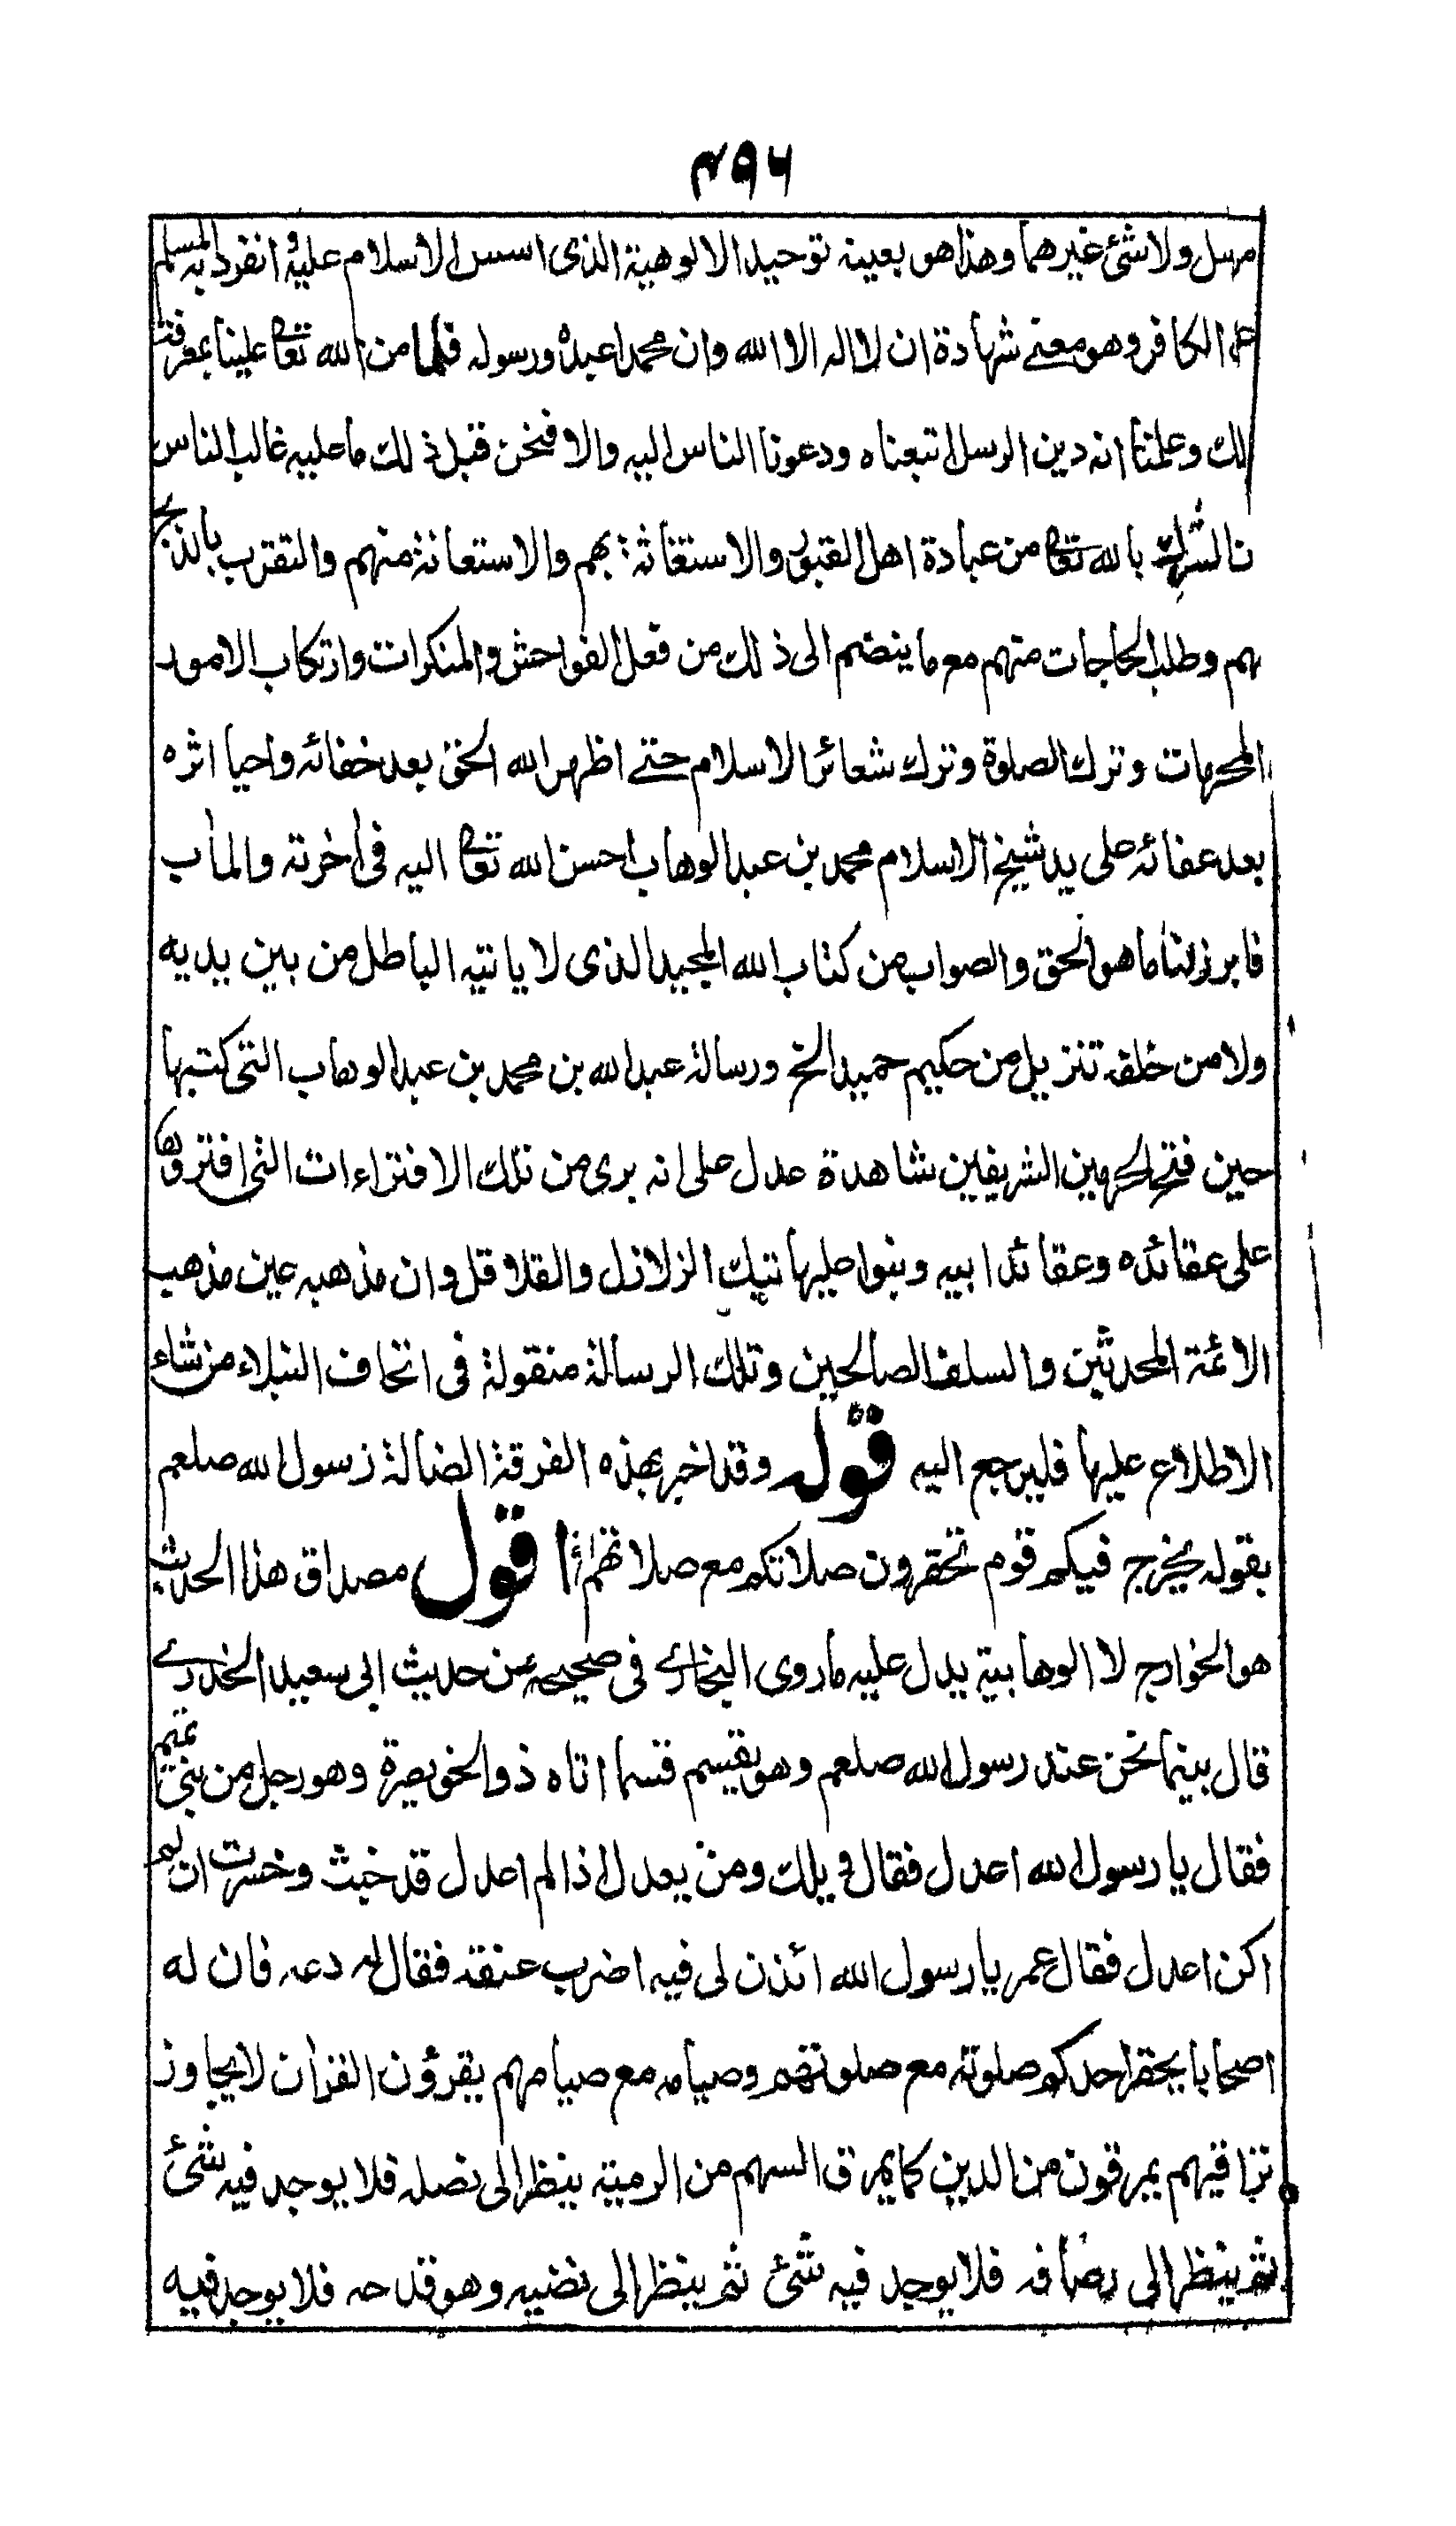 ۴۹۶
مرسل ولا شئ غيرهما وهذا هو بعينه توحيد الالوهية الذى اسس الاسلام عليه و انفرد به المسلم
عن الكافر وهو معنے شهادة ان لا اله الا الله وان محمدا عبده ورسوله فلما من الله تعالى علينا بمعرفة
لك وعلمنا انه دين الرسل اتبعناه ودعونا الناس اليه والا فنحن قبل ذلك ما عليه غالب الناس
ن الشرك بالله تعالى من عبادة اهل القبور والاستغاثة بهم والاستعانة منهم والتقرب بالذبح
لهم وطلب الحاجات منهم مع ما ينضم الى ذلك من فعل الفواحش والمنكرات وارتكاب الامور
المحرمات وترك الصلوة وترك شعائر الاسلام حتے اظهر الله الحق بعد خفائه واحيا اثره
بعد عفائه على يد شيخ الاسلام محمد بن عبد الوهاب احسن الله تعالى اليه فى أخرته والمأب
فابرز لنا ما هو الحق والصواب من كتاب الله المجيد الذى لا ياتيه الباطل من بين يديه
ولا من خلفه تنزيل من حكيم حميد الخ ورسالة عبد الله بن محمد بن عبد الوهاب التى كتبها
حين فتح الحرمين الشريفين شاهدة عدل على انه برى من تلك الافتراءات التى افتروها
على عقائده وعقائد ابيه وبنوا عليها تيك الزلازل والقلاقل وان مذهبه عين مذهب
الائمة المحدثين والسلف الصالحين وتلك الرسالة منقولة فى اتحاف النبلاء من شاء
الاطلاع عليها فليرجع اليه قوله وقد اخبر بهذه الفرقة الضالة رسول الله صلعم
بقوله يخرج فيكم قوم تحقرون صلاتكم مع صلاتهم اقول مصداق هذا الحديث
هو الخوارج لا الوهابية يدل عليه ما روى البخارى فى صحيحه من حديث ابى سعيد الخدرے
قال بينما نحن عند رسول الله صلعم وهو يقسم قسما اتاه ذو الخويصرة وهو رجل من بنى تميم
فقال يا رسول الله اعدل فقال ويلك ومن يعدل اذا لم اعدل قد خبت وخسرت ان لم
اكن اعدل فقال عمر يا رسول الله ائذن لى فيه اضرب عنقه فقال له دعه فان له
اصحابا يحقر احدكم صلوته مع صلوتهم وصيامه مع صيامهم يقرؤن القرأن لا يجاوز
تراقيهم يمرقون من الدين كما يمرق السهم من الرمية ينظر الى نصله فلا يوجد فيه شئ
ثم ينظر الى رصافه فلا يوجد فيه شئ ثم ينظر الى نضيه وهو قدحه فلا يوجد فيه